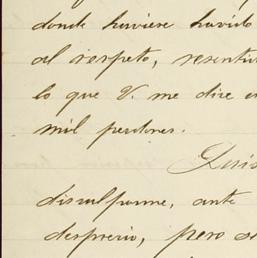 donde huviere havido
al respeto, resentir
lo que V. me dice en
mil perdones.
disculparme, ante
desprecio, pero